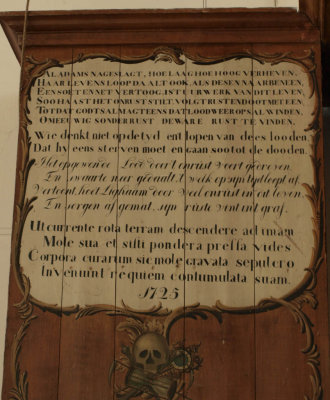 AL ADAMS NAGESLAGT, HOE LAAG HOE HOOG VERHEVEN,
HAAR LEVENS LOOP DAALT OOK, ALS DESEN NAAR BENEEN,
EEN SOET EN NET VERTOOG IS 'T UURWERK VAN DIT LEVEN,
SOO HAAST HET ONRUST STILT, VOLGT RUST EN DOOT MET EEN,
TOT DAT GODTS ALMAGT EENS DAT LOOD WEER OP SAL WINDEN,
OM EEUWIG SONDER RUST DE WARE RUST TE VINDEN.
Wie denkt niet op de tyd ent lopen van dees looden,
Dat hy eens sterven moet en gaan soo tot de dooden.
Het opgewonde Lood voert onrust voert
En swaarte naar gedaalt, welk op syn tyd loopt af
Vertoont, hoet Lighaam door veel onrust in dit leven
En sorgen af gemat, syn ruste vint int graf.
Ut currente rota terram descendere ad imam
Mole sua et sisti pondera pressa vides
Corpora curarum sic mole gravata sepulcro
Inveniunt requiem contumulata suam.
1725